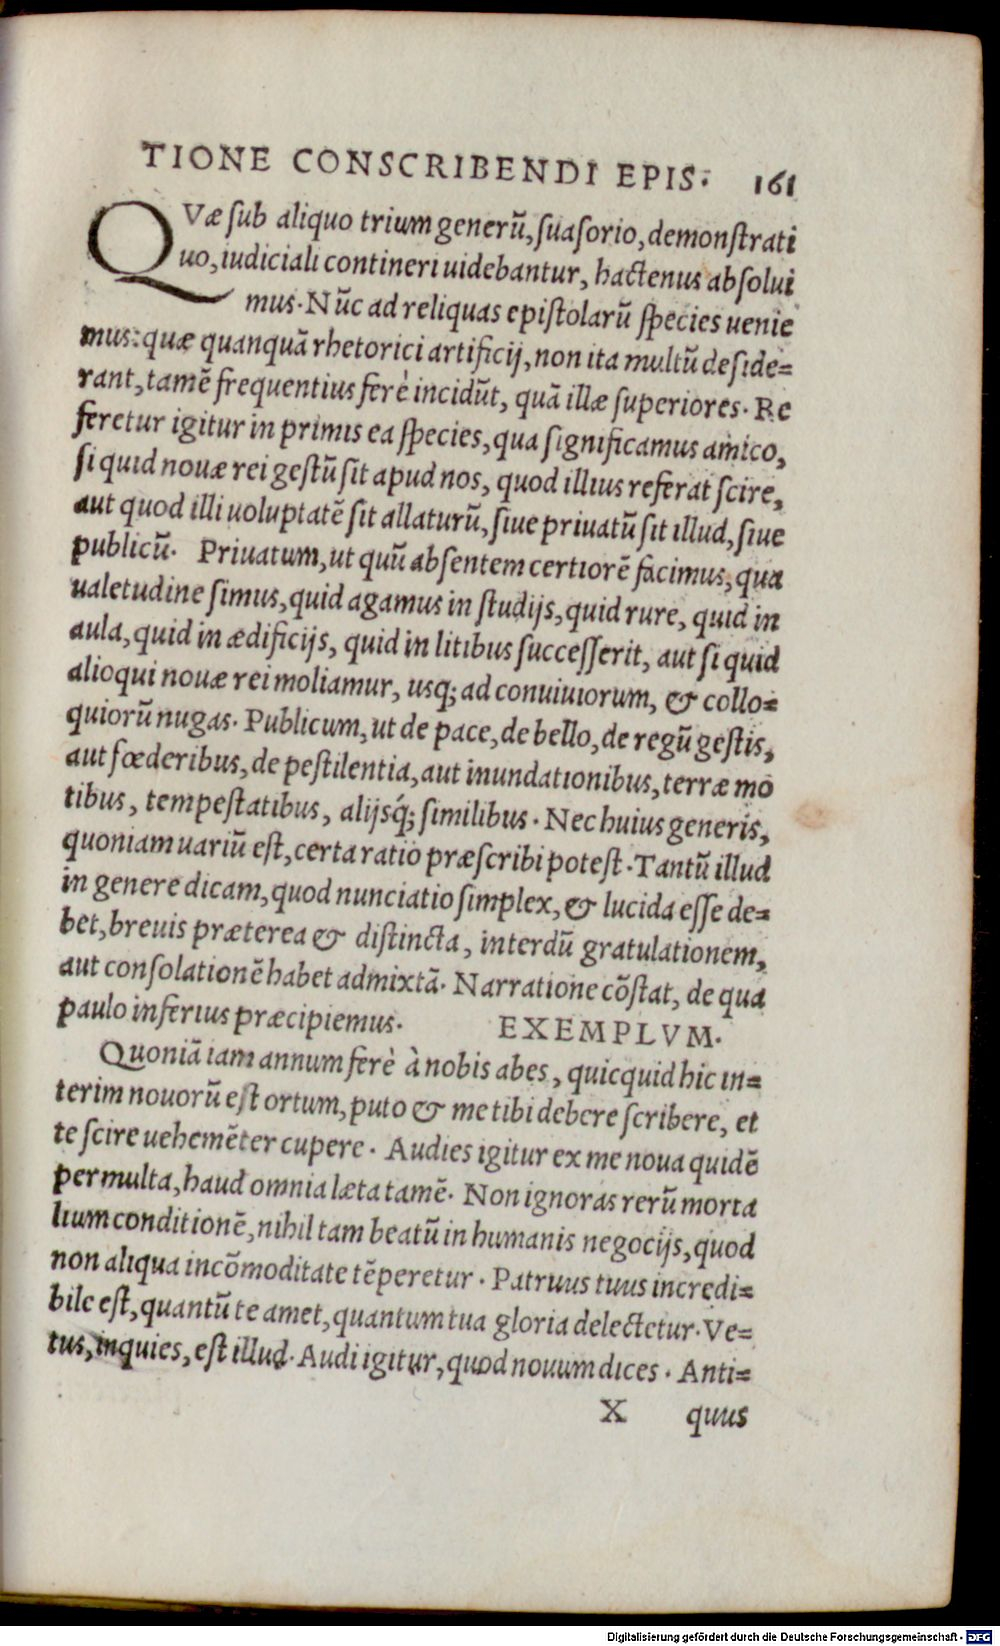 TIONE CONSCRIBENDI EPIS. 161
QVæ ſub aliquo trium generũ, ſuaſorio, demonſtrati
uo, iudiciali contineri uidebantur, hactenus abſolui
mus. Nũc ad reliquas epiſtolarũ ſpecies uenie
mus: quæ quanquã rhetorici artificij, non ita multũ deſide=
rant, tamẽ frequentius ferè incidũt, quã illæ ſuperiores. Re
feretur igitur in primis ea ſpecies, qua ſignificamus amico,
ſi quid nouæ rei geſtũ ſit apud nos, quod illius referat ſcire,
aut quod illi uoluptatẽ ſit allaturũ, ſiue priuatũ ſit illud, ſiue
publicũ. Priuatum, ut quũ abſentem certiorẽ facimus, qua
ualetudine ſimus, quid agamus in ſtudijs, quid rure, quid in
aula, quid in ædificijs, quid in litibus ſucceſſerit, aut ſi quid
alioqui nouæ rei moliamur, usq; ad conuiuiorum, & collo=
quiorũ nugas. Publicum, ut de pace, de bello, de regũ geſtis,
aut fœderibus, de peſtilentia, aut inundationibus, terræ mo
tibus, tempeſtatibus, alijsq́; ſimilibus. Nec huius generis,
quoniam uariũ eſt, certa ratio præſcribi poteſt. Tantũ illud
in genere dicam, quod nunciatio ſimplex, & lucida eſſe de=
bet, breuis præterea & diſtincta, interdũ gratulationem,
aut conſolationẽ habet admixtã. Narratione cõſtat, de qua
paulo inferius præcipiemus. EXEMPLVM.
Quoniã iam annum ferè à nobis abes, quicquid hic in=
terim nouorũ eſt ortum, puto & me tibi debere ſcribere, et
te ſcire uehemẽter cupere. Audies igitur ex me noua quidẽ
permulta, haud omnia læta tamẽ. Non ignoras rerũ morta
lium conditionẽ, nihil tam beatũ in humanis negocijs, quod
non aliqua incõmoditate tẽperetur. Patruus tuus incredi=
bile eſt, quantũ te amet, quantum tua gloria delectetur. Ve=
tus, inquies, eſt illud. Audi igitur, quod nouum dices. Anti=
X quus
Digitalisierung gefördert durch die Deutsche Forschungsgemeinschaft - DFG